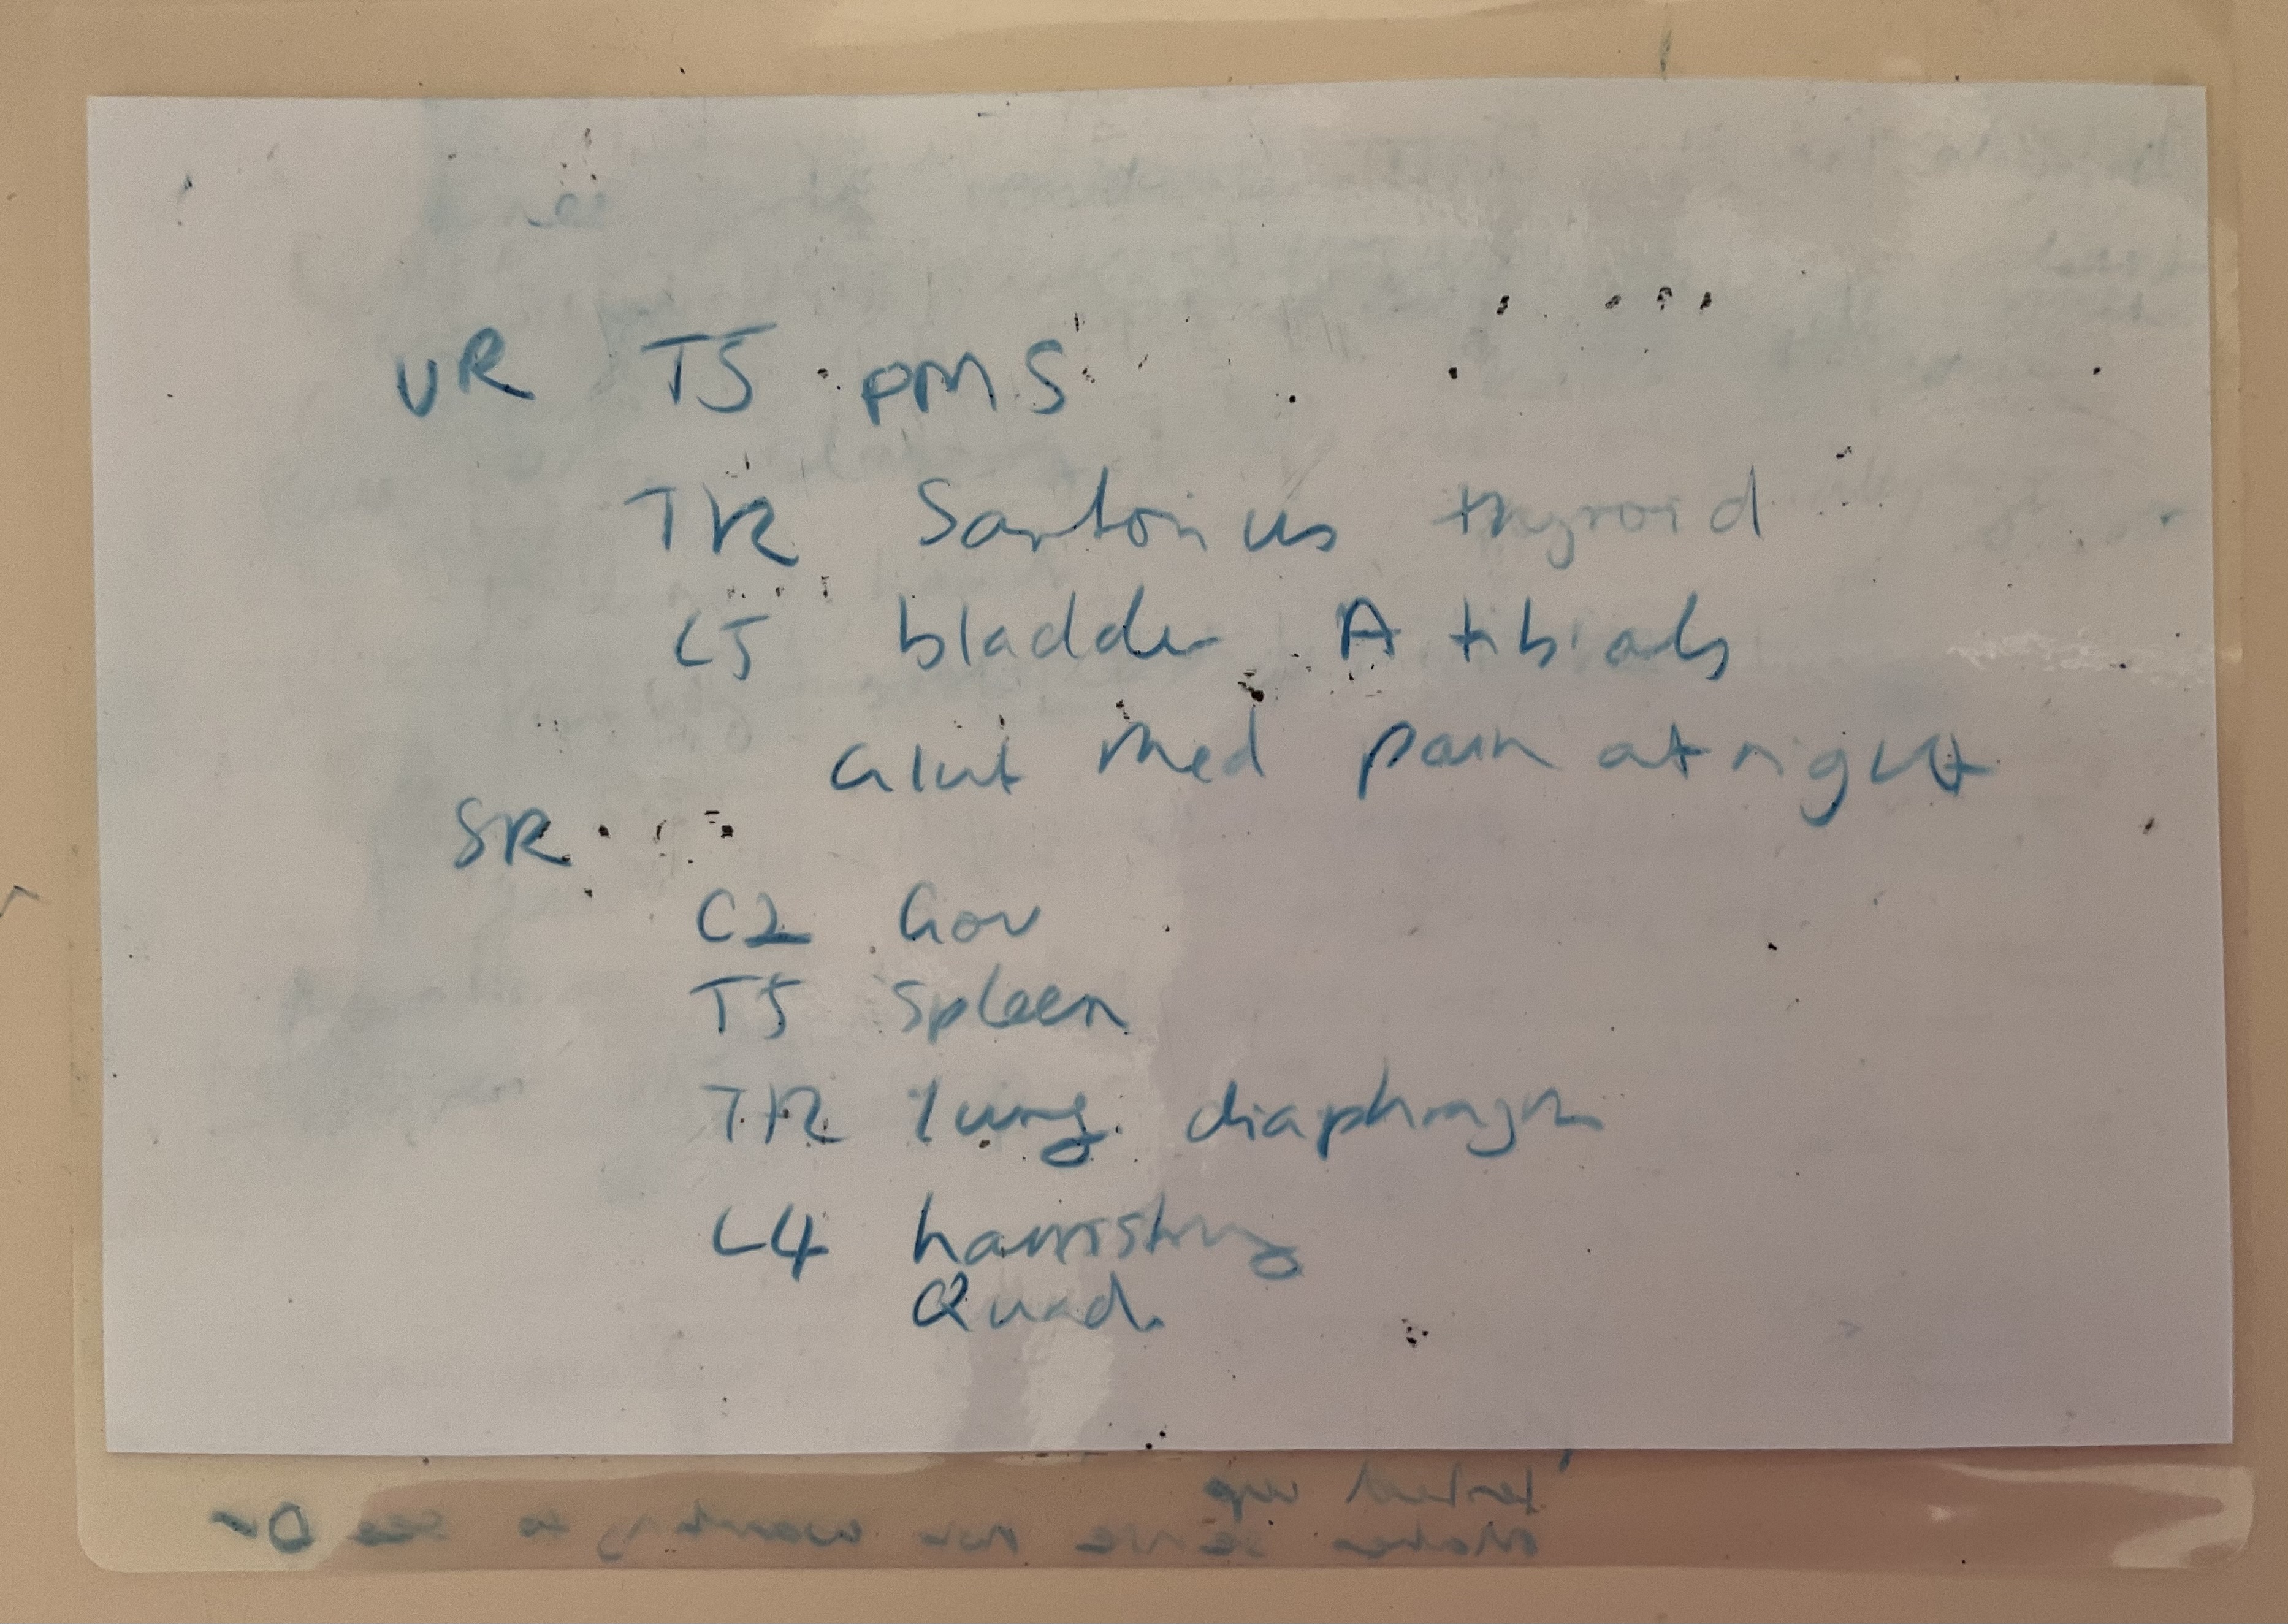 UR T5 PMS
T12 Sartorius thyroid
L5 bladder A tibials
Glut Med pain at night
SR
C2 Gov
T5 Spleen
T12 lung diaphragm
L4 hamstring
Quad